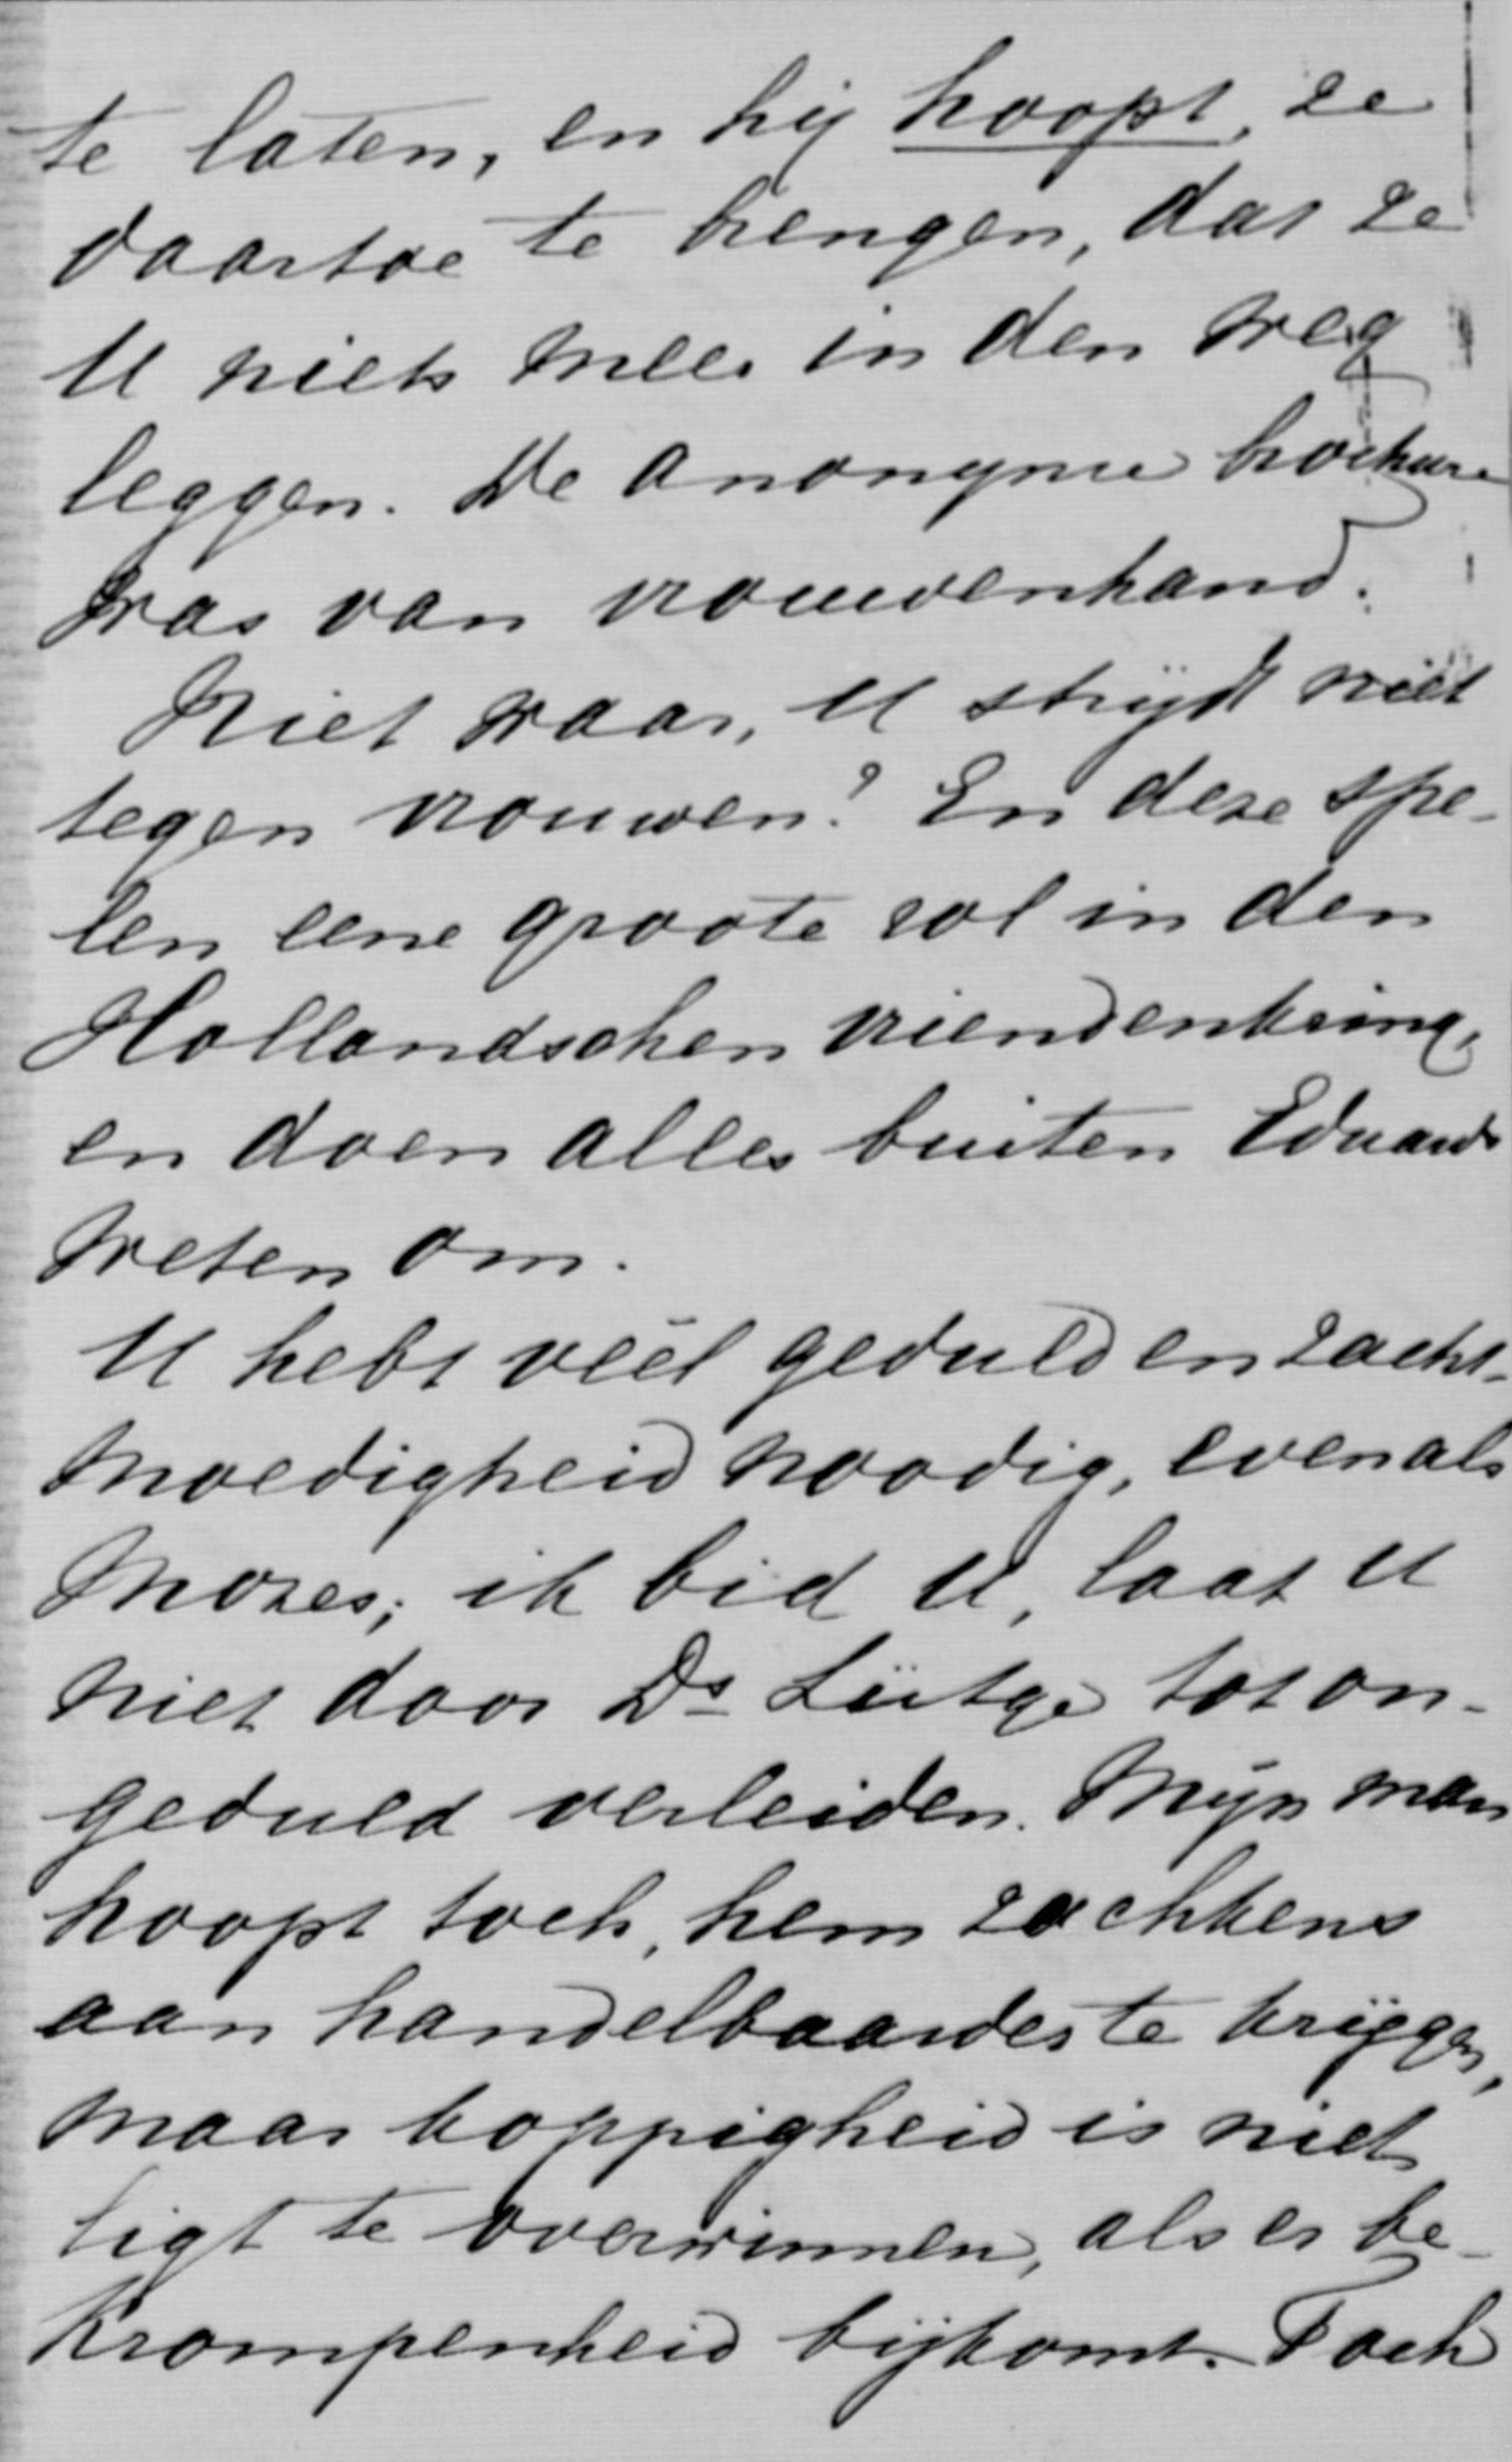 te laten, en hij hoopt, ze
daartoe te brengen, dat ze
U niets meer in den weg
leggen. De anonyme brochure
was van vrouwenhand.
Niet waar, U strijdt niet
tegen vrouwen? En deze spe-
len eene groote rol in den
Hollandschen vriendenkring,
en doen alles buiten Eduards
weten om.
U hebt veel geduld en zacht-
moedigheid noodig, evenals
Mozes; ik bid U, laat U
niet door Ds Lütge tot on-
geduld verleiden. Mijn man
hoopt toch, hem zachtkens
aan handelbaarder te krijgen,
maar koppigheid is niet
ligt te overwinnen, als er be-
krompenheid bijkomt. Toch